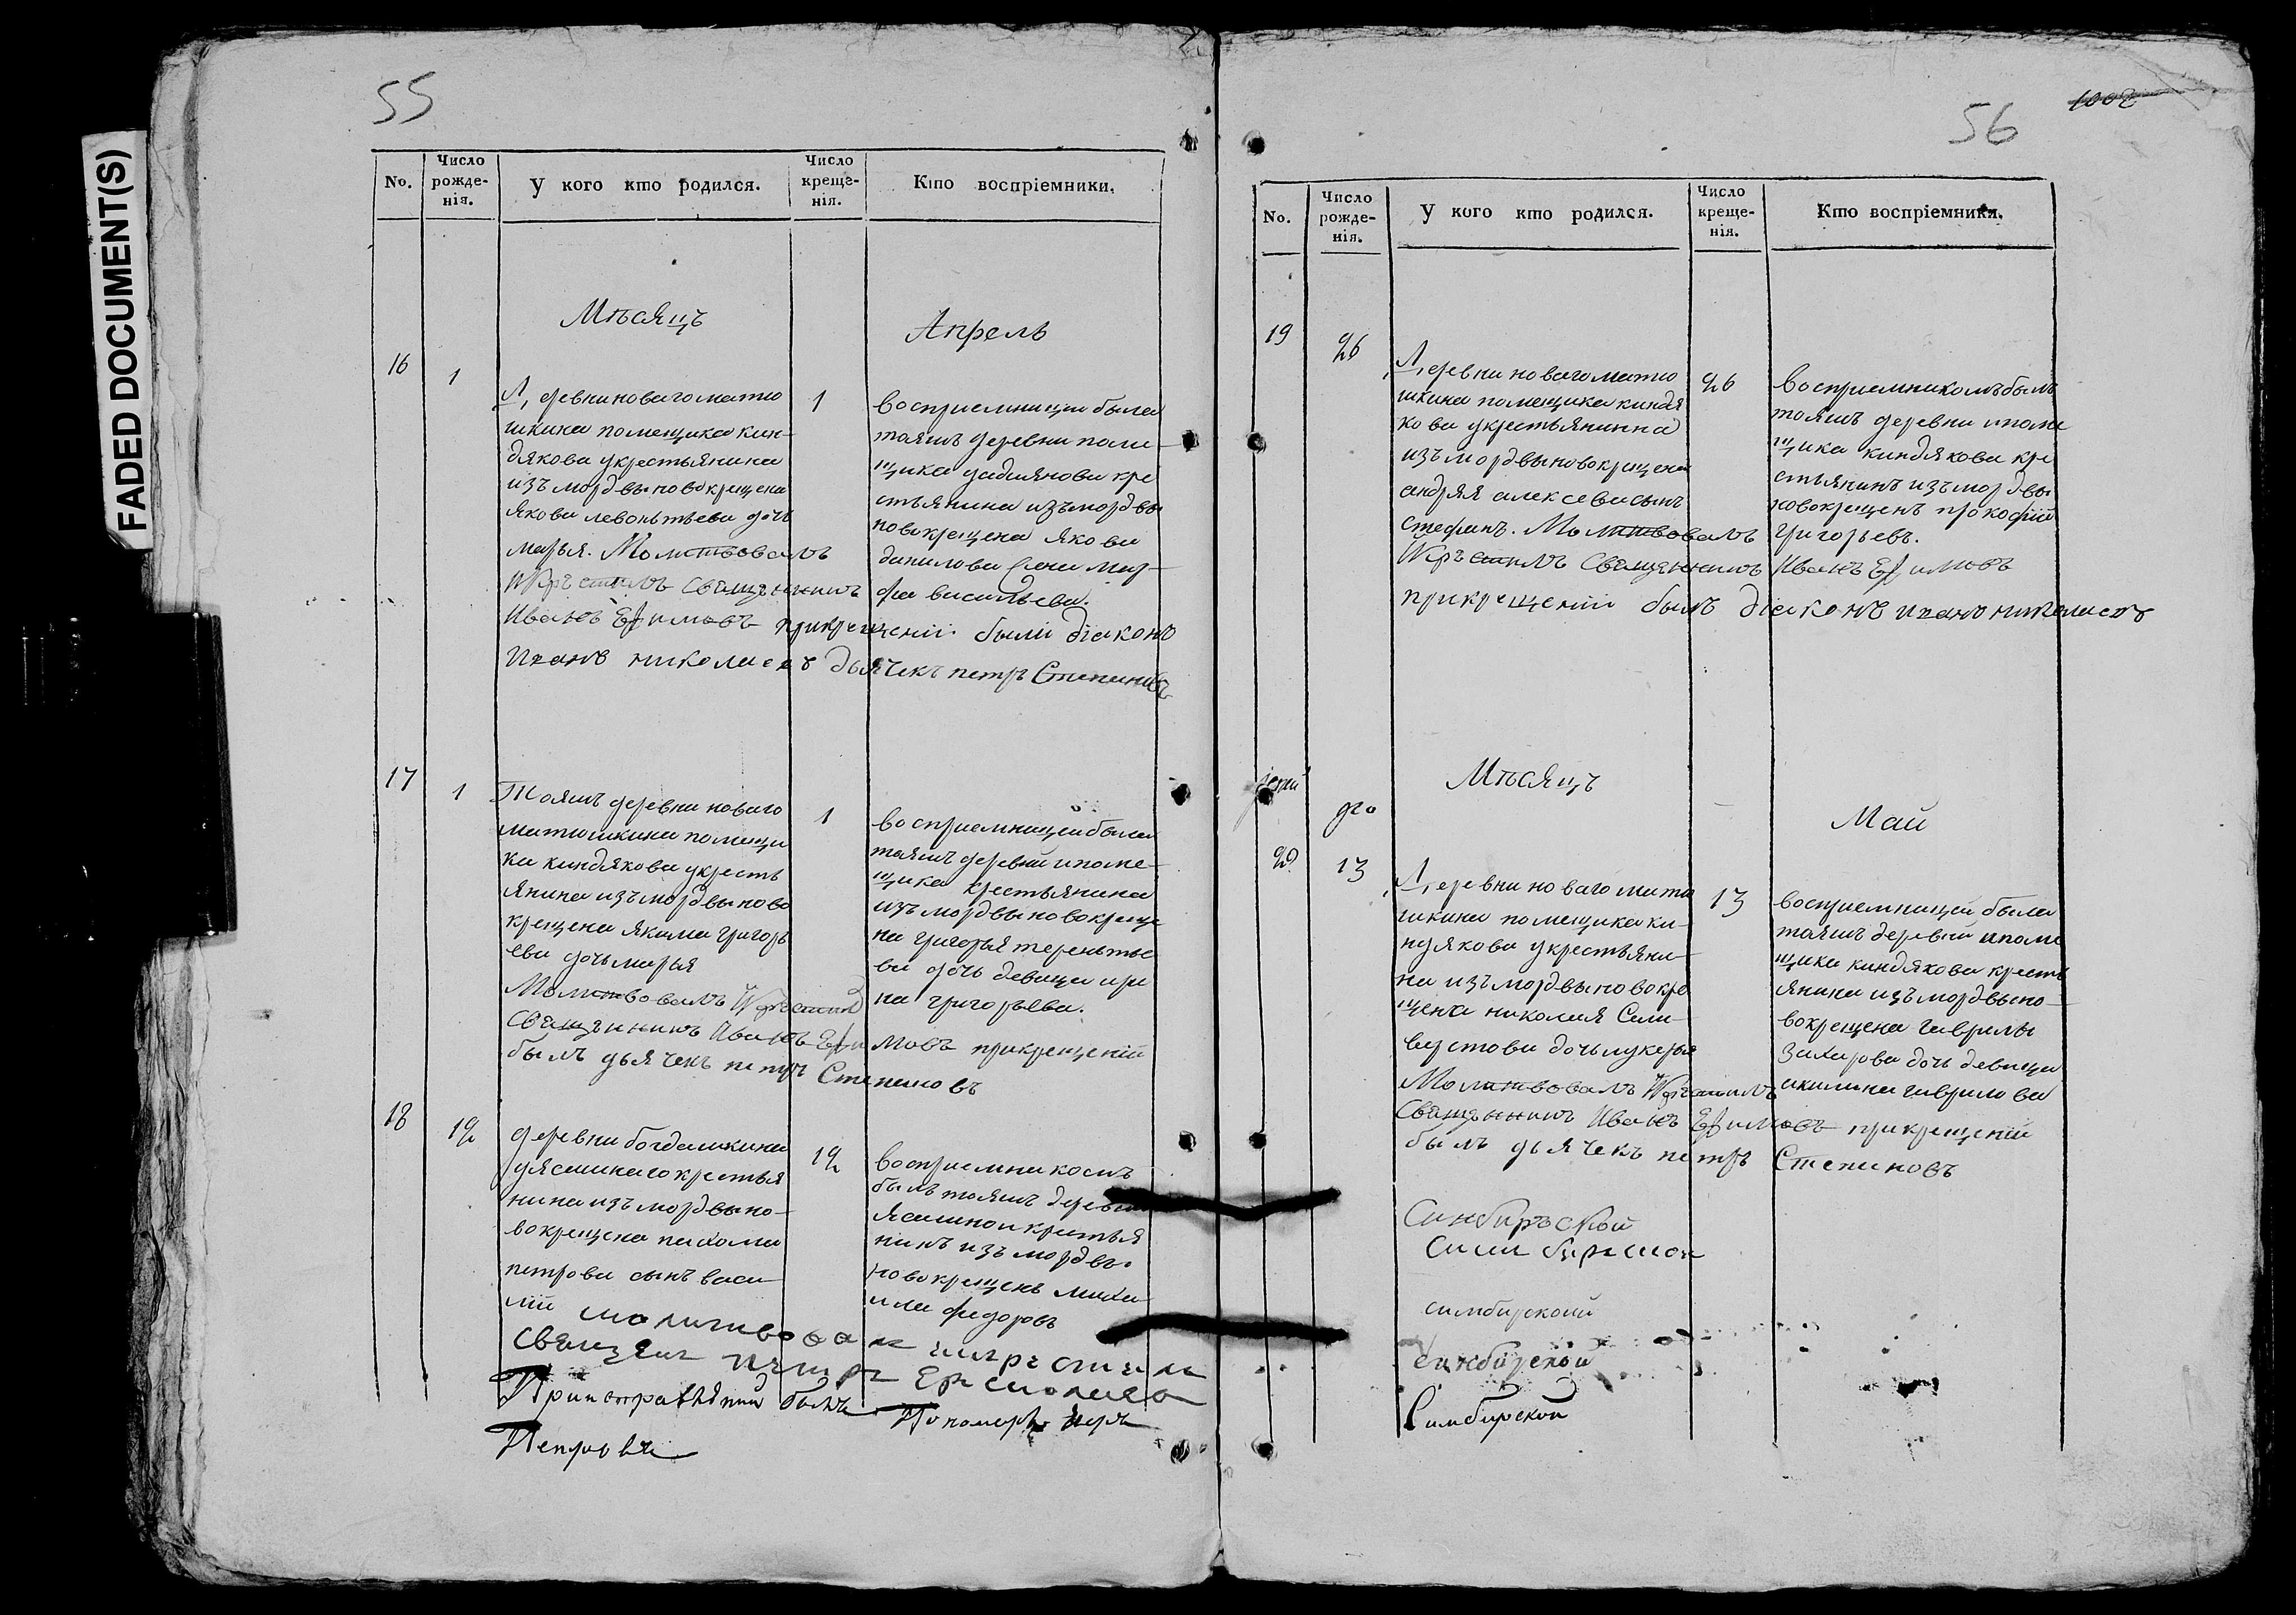 FADED DOCUMENT(S)
55
No.
Число рожде-нія.
У кого кто родился.
Число креще-нія.
Кто воспріемники.
Мѣсяцъ
Апрель
16
1
Деревни новаго матю
шкина помещика кин-
дякова укрестьянина
изъ мордвы новокрещена
якова левонтьева дочь
марья. Молитвовалъ
Икрѣстилъ Священникъ
Иванъ Ефимовъ прикрещеніи были діаконъ
Иванъ николаевъ дьячекъ петръ Степановъ
1
восприемницеи была
тояжъ деревни поме-
щика
кре
стьянина изъ мордвы
новокрещена якова
данилова жена мар-
фа васильева.
17
1
Тояжъ деревни новаго
матюшкина помещи
ка киндякова укресть
янина изъ мордвы ново
крещена якима григорь
ева дочь марья
Молитвовалъ Икрестилъ
Священникъ Иванъ Ефимовъ прикрещеніи
былъ дьячекъ петръ Степановъ
1
восприемницей была
тояжъ деревни ипоме-
щика крестьянина
изъ мордвы новокреще
на григорья терентье
ва дочь девица ири
на григорьева.
18
12
деревни богдашкина
уясашнаго крестья
нина изъ мордвы но-
вокрещена пахома
петрова сынъ васи-
лій молитвовалъ икрестилъ
Священикъ Петръ Ермолаевъ
При отправленіи былъ Пономарь
Петровъ
12
восприемникомъ
былъ тояжъ деревни
ясашнои крестья
нинъ изъ мордвы
новокрещенъ миха-
ила федоровъ
56
1002
No.
Число рожде-нія.
У кого кто родился.
Число креще-нія.
Кто воспріемники.
19
26
Деревни новаго матю
шкина помещика киндя
кова укрестьянина
изъ мордвы новокрещена
андрея алексеева сынъ
стефанъ. Молитвовалъ
Икрѣстилъ Священникъ Иванъ Ефимовъ
прикрещеніи былъ діаконъ Иванъ николаевъ
26
восприемникомъ былъ
тояжъ деревни ипоме
щика киндякова кре
стьянинъ изъ мордвы
новокрещенъ прокофій
григорьевъ.
Мѣсяцъ
Май
20
13
Деревни новаго матю
шкина помещика ки-
ндякова укрестьяни-
на изъ мордвы новокре
щена николая Сели-
верстова дочь лукерья
Молитвовалъ Икрестилъ
Священникъ Иванъ Ефимовъ прикрещеніи
былъ дьячекъ петръ Степановъ
13
восприемницей была
тояжъ деревни ипоме
щика киндякова кресть
янина изъ мордвы но-
вокрещена гаврилы
захарова дочь девица
акилина гаврилова
Синбирьской
симбирской
симбирскоий
синбирской
Симбирской